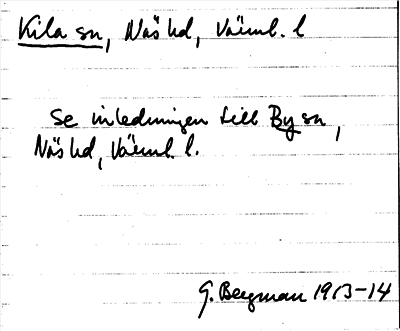 Kila sn, Näs hd, Värml. l
Se inledningen till By sn,
Näs hd, Värml. l.
G. Bergman 1913-14